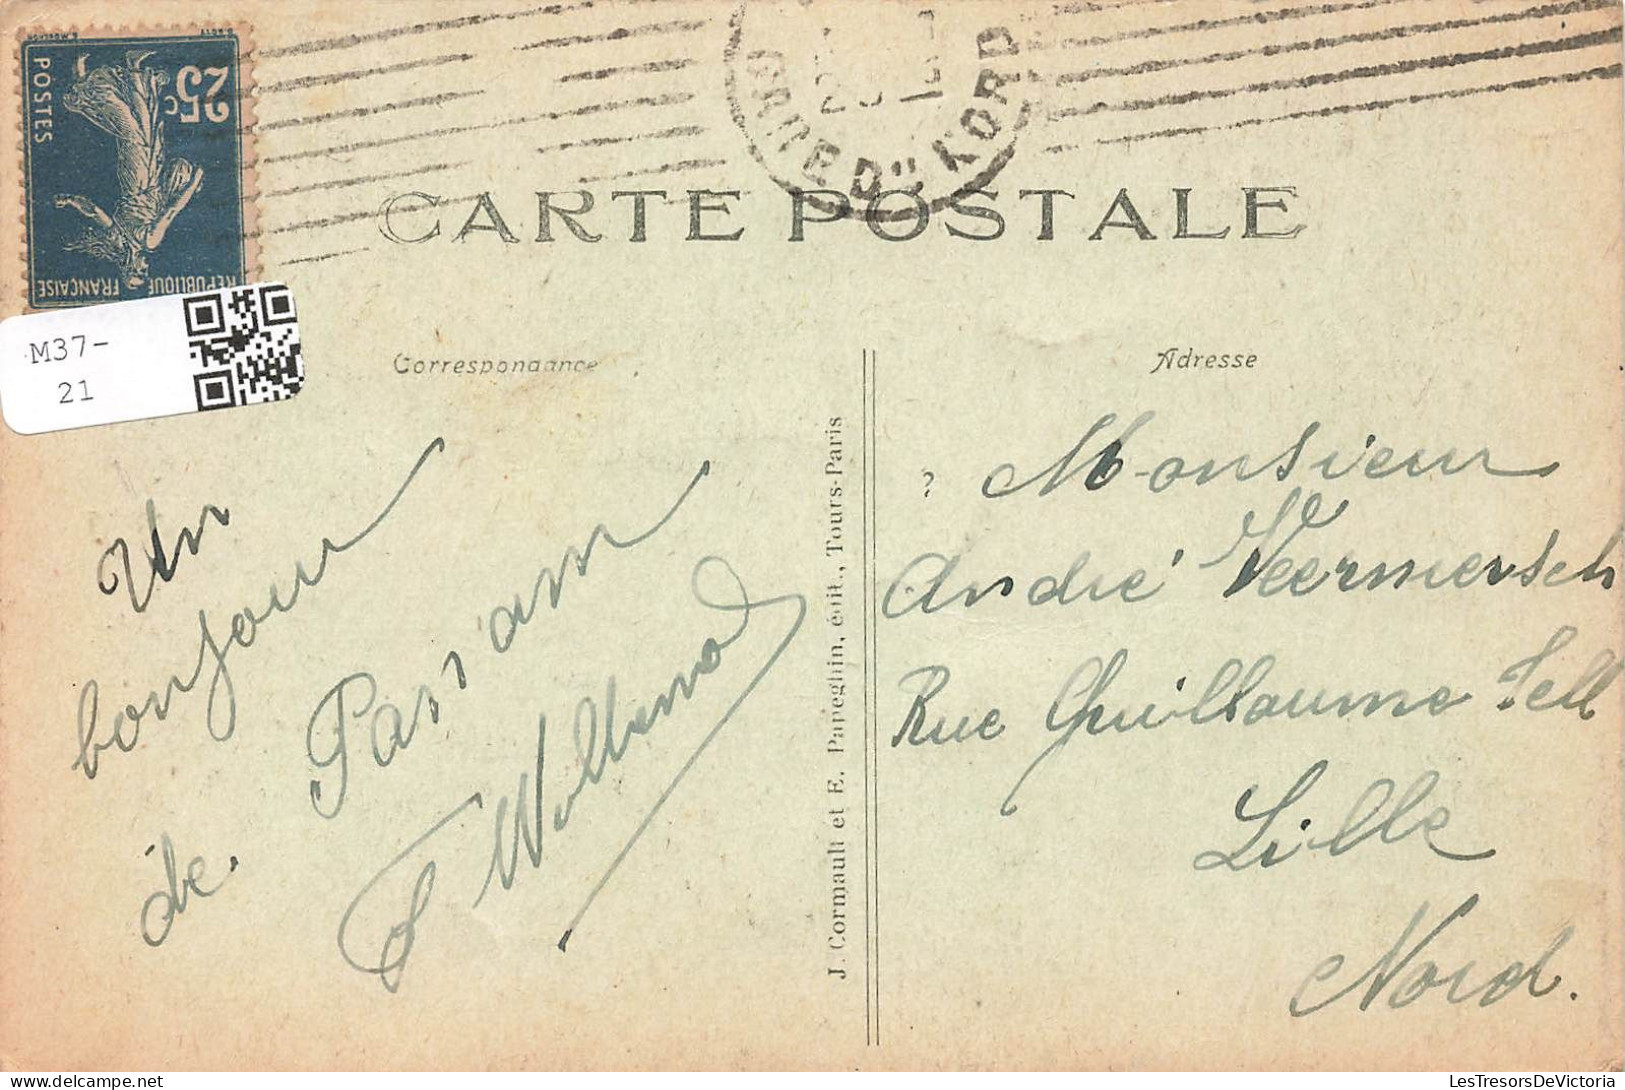 25c
POSTES
REPUBLIQUE FRANÇAISE
GARE DU NORD
CARTE POSTALE
M37-
21
Correspondance
Adresse
Un
bonjour
de
Passam
J. Cormault et E. Papeghin, édit., Tours-Paris
?
Monsieur
André Veermersch
Rue Guillaume Tell
Lille
Nord.
LesTresorsDeVictoria